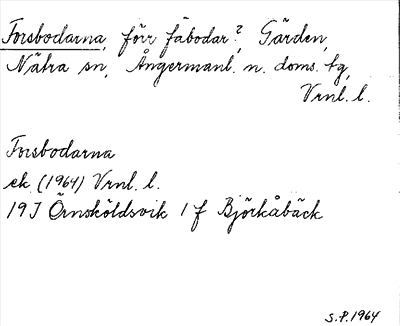 Forsbodarna, förr fäbodar?, Gården,
Nätra sn, Ångermanl. n. doms. tg,
Vrnl. l.
Forsbodarna
ek (1964) Vrnl. l.
19J Örnsköldsvik 1 f Björkåbäck
S.P. 1964